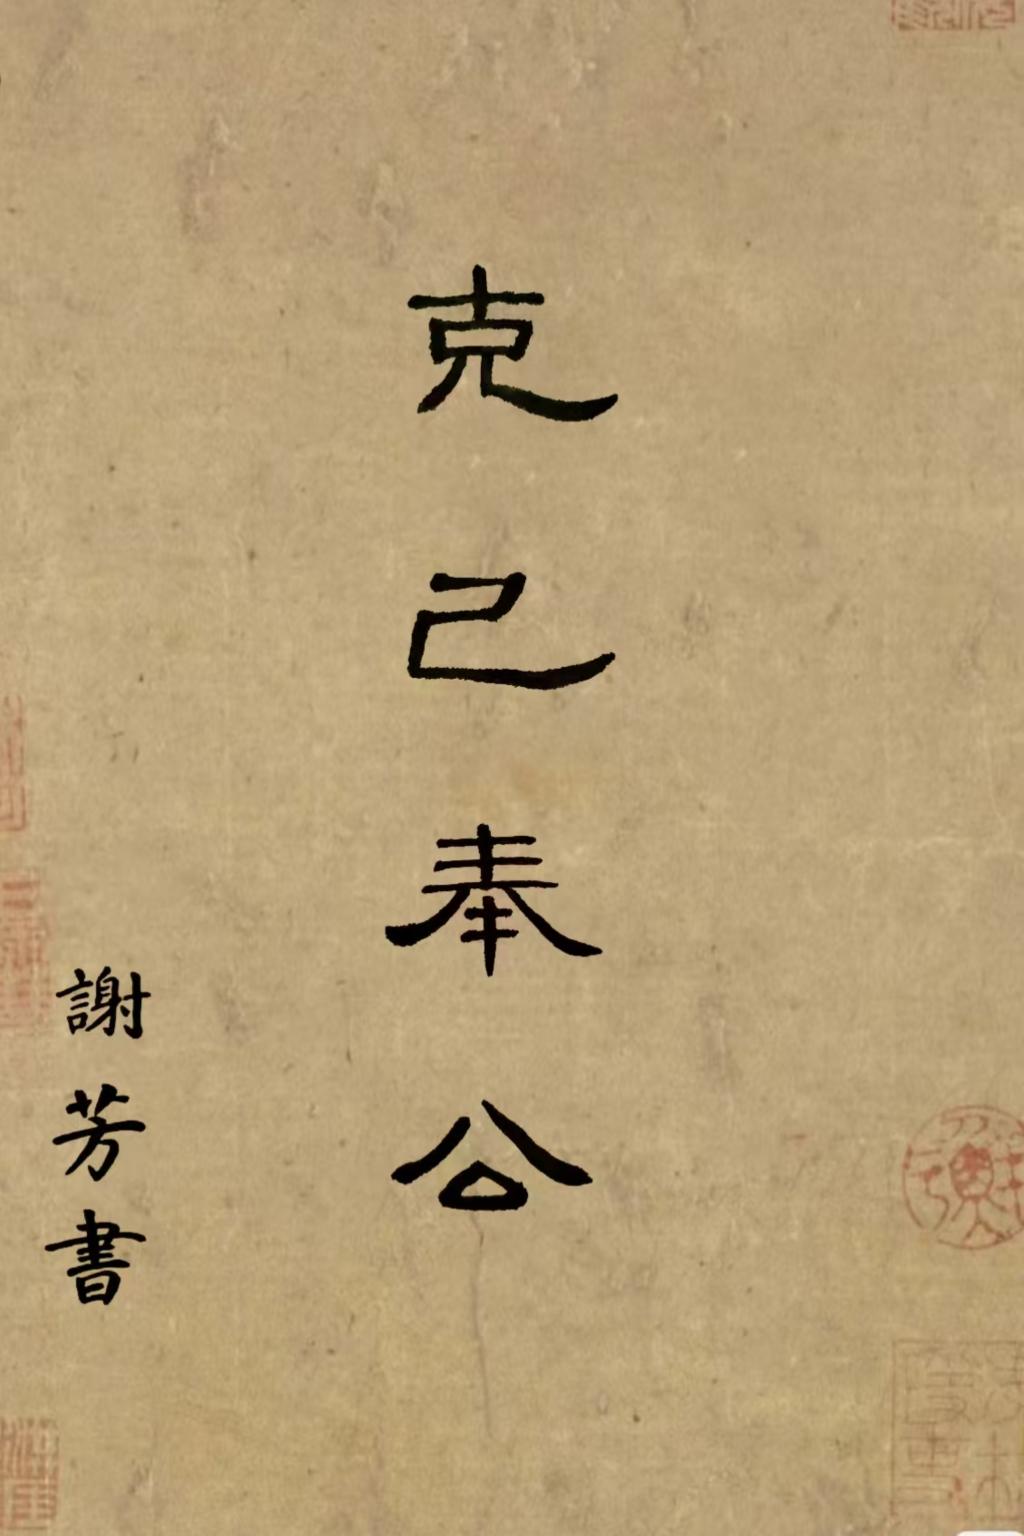 克己奉公
謝芳書